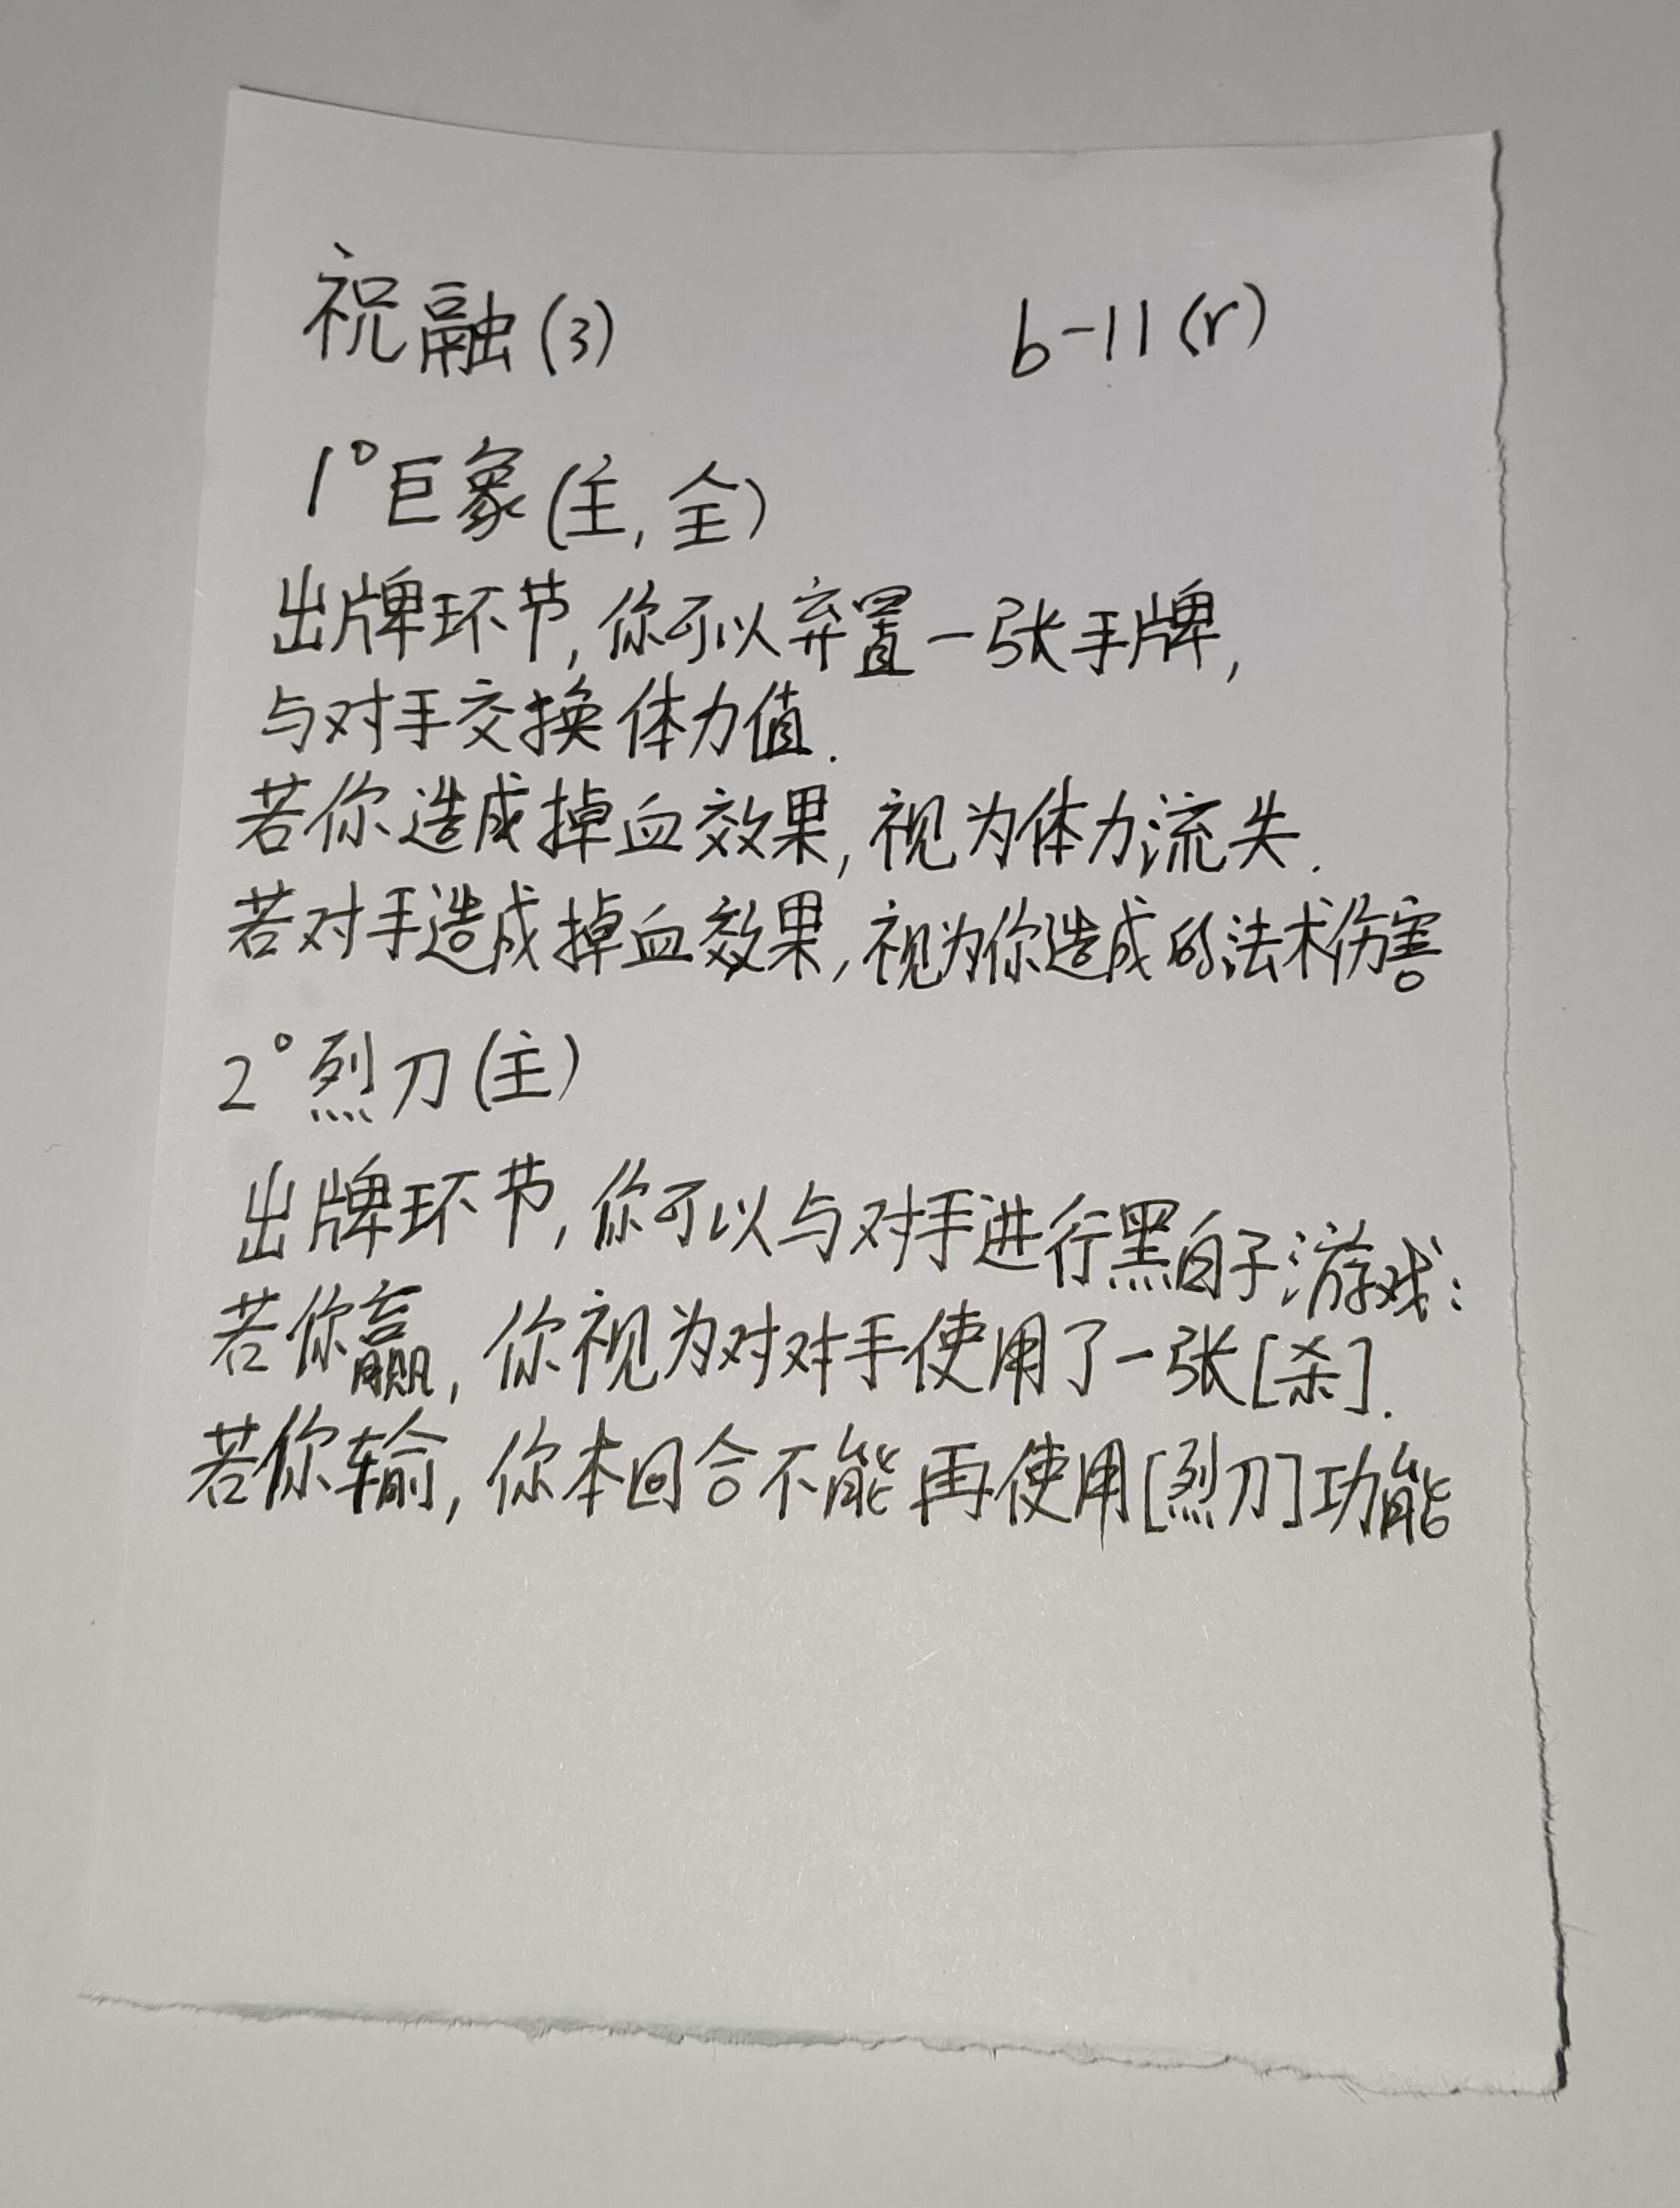 祝融(3) b-11(r)
1°巨象(主,全)
出牌环节,你可以弃置一张手牌,
与对手交换体力值.
若你造成掉血效果,视为体力流失.
若对手造成掉血效果,视为你造成的法术伤害
2°烈刀(主)
出牌环节,你可以与对手进行黑白子游戏:
若你赢,你视为对对手使用了一张[杀].
若你输,你本回合不能再使用[烈刀]功能